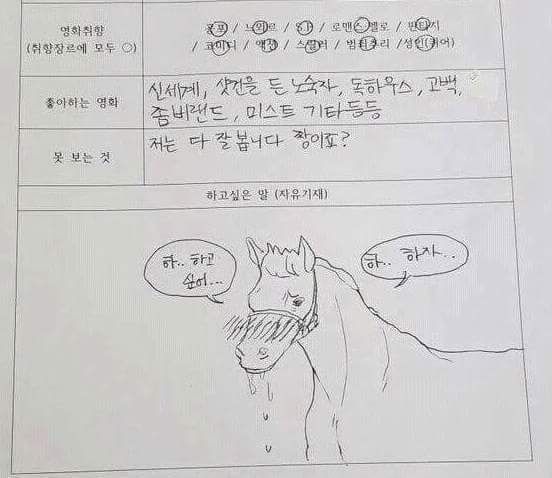 영화취향
(취향장르에 모두 ○)
공포 / 느와르 / 멜로 / 로맨스 멜로 / 판타지
/ 코미디 / 액션 / 스릴러 / 범죄추리 / 성인(퀴어)
좋아하는 영화
신세계, 샷건을 든 노숙자, 독하우스, 고백,
좀비랜드, 미스트 기타등등
못 보는 것
저는 다 잘 봅니다 짱이죠?
하고싶은 말 (자유기재)
하.. 하고
싶어...
하.. 하자..